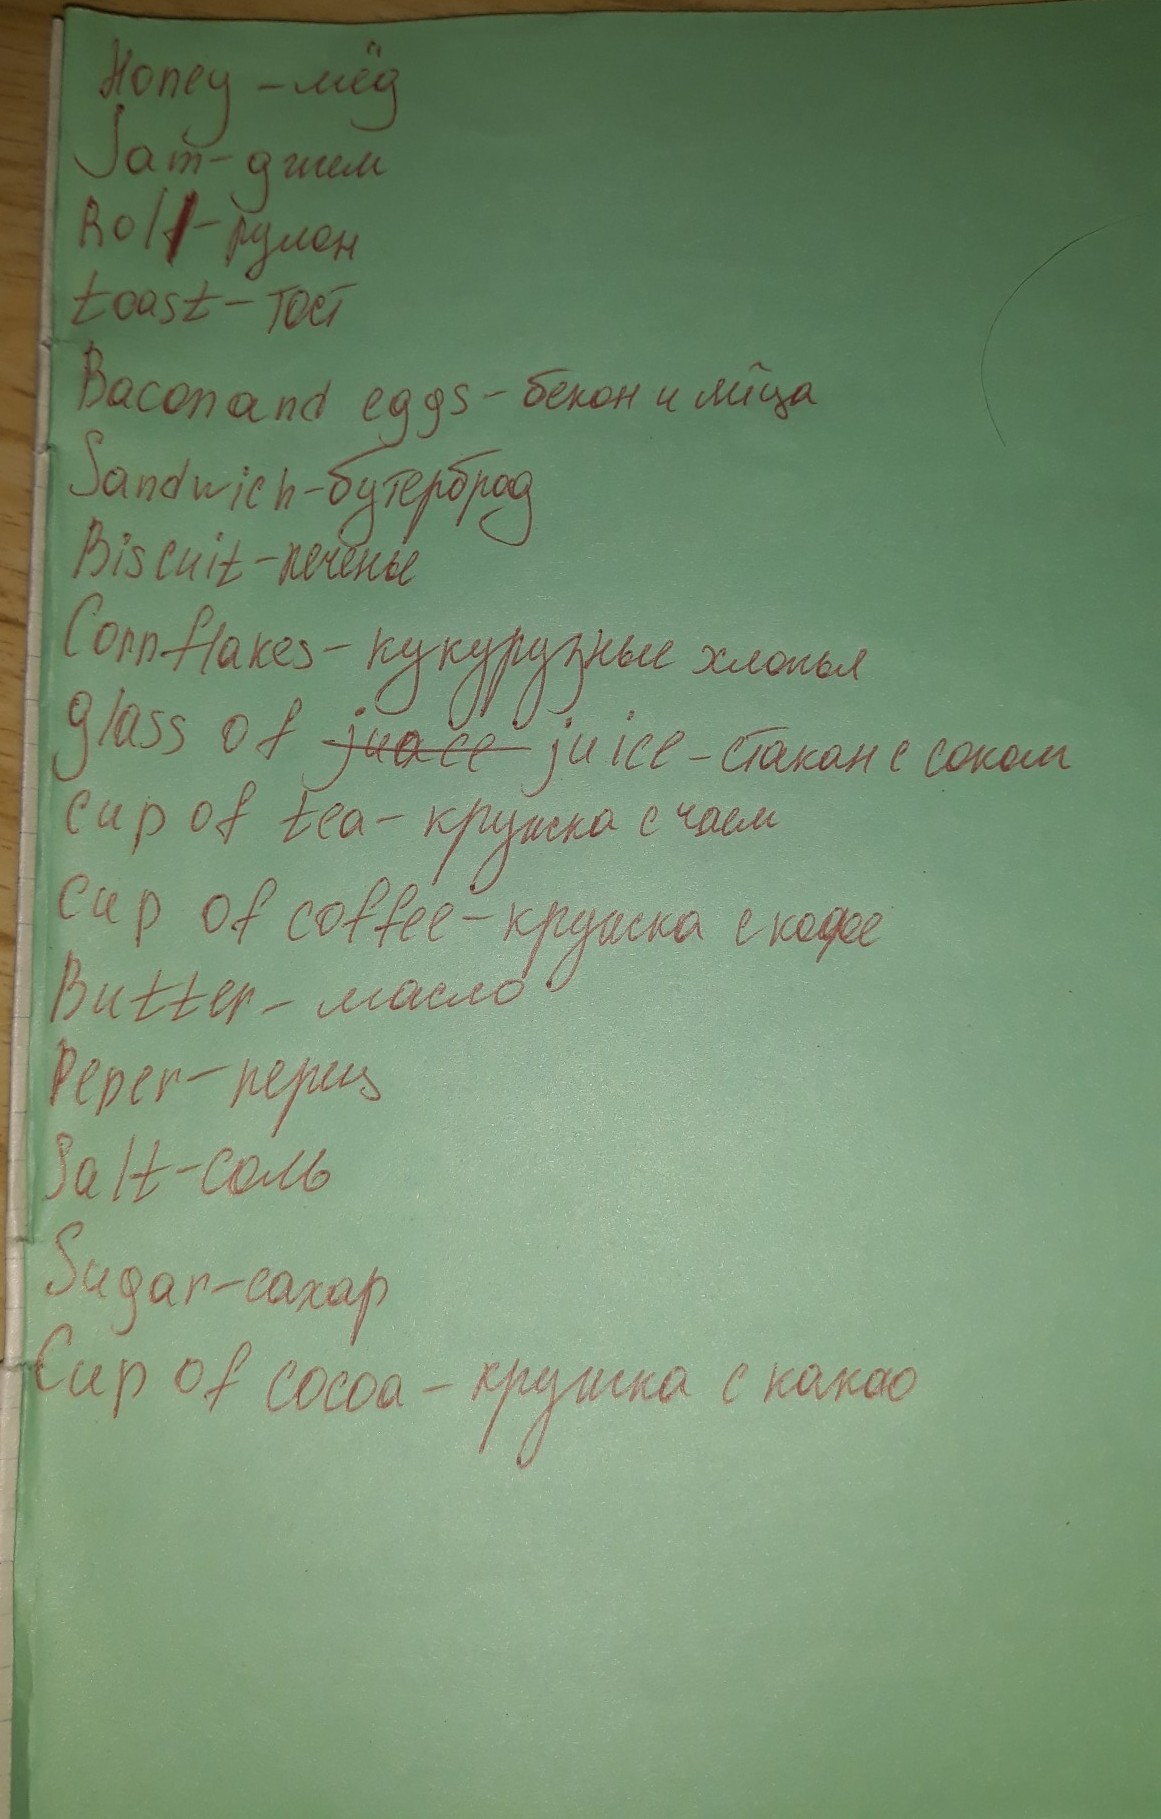 Honey - мёд
Jam - джем
Roll - рулон
toast - тост
Bacon and eggs - бекон и яйца
Sandwich - бутерброд
Biscuit - печенье
Cornflakes - кукурузные хлопья
glass of juace juice - стакан с соком
cup of tea - кружка с чаем
cup of coffee - кружка с кофе
Butter - масло
Peper - перец
Salt - соль
Sugar - сахар
Cup of cocoa - кружка с какао